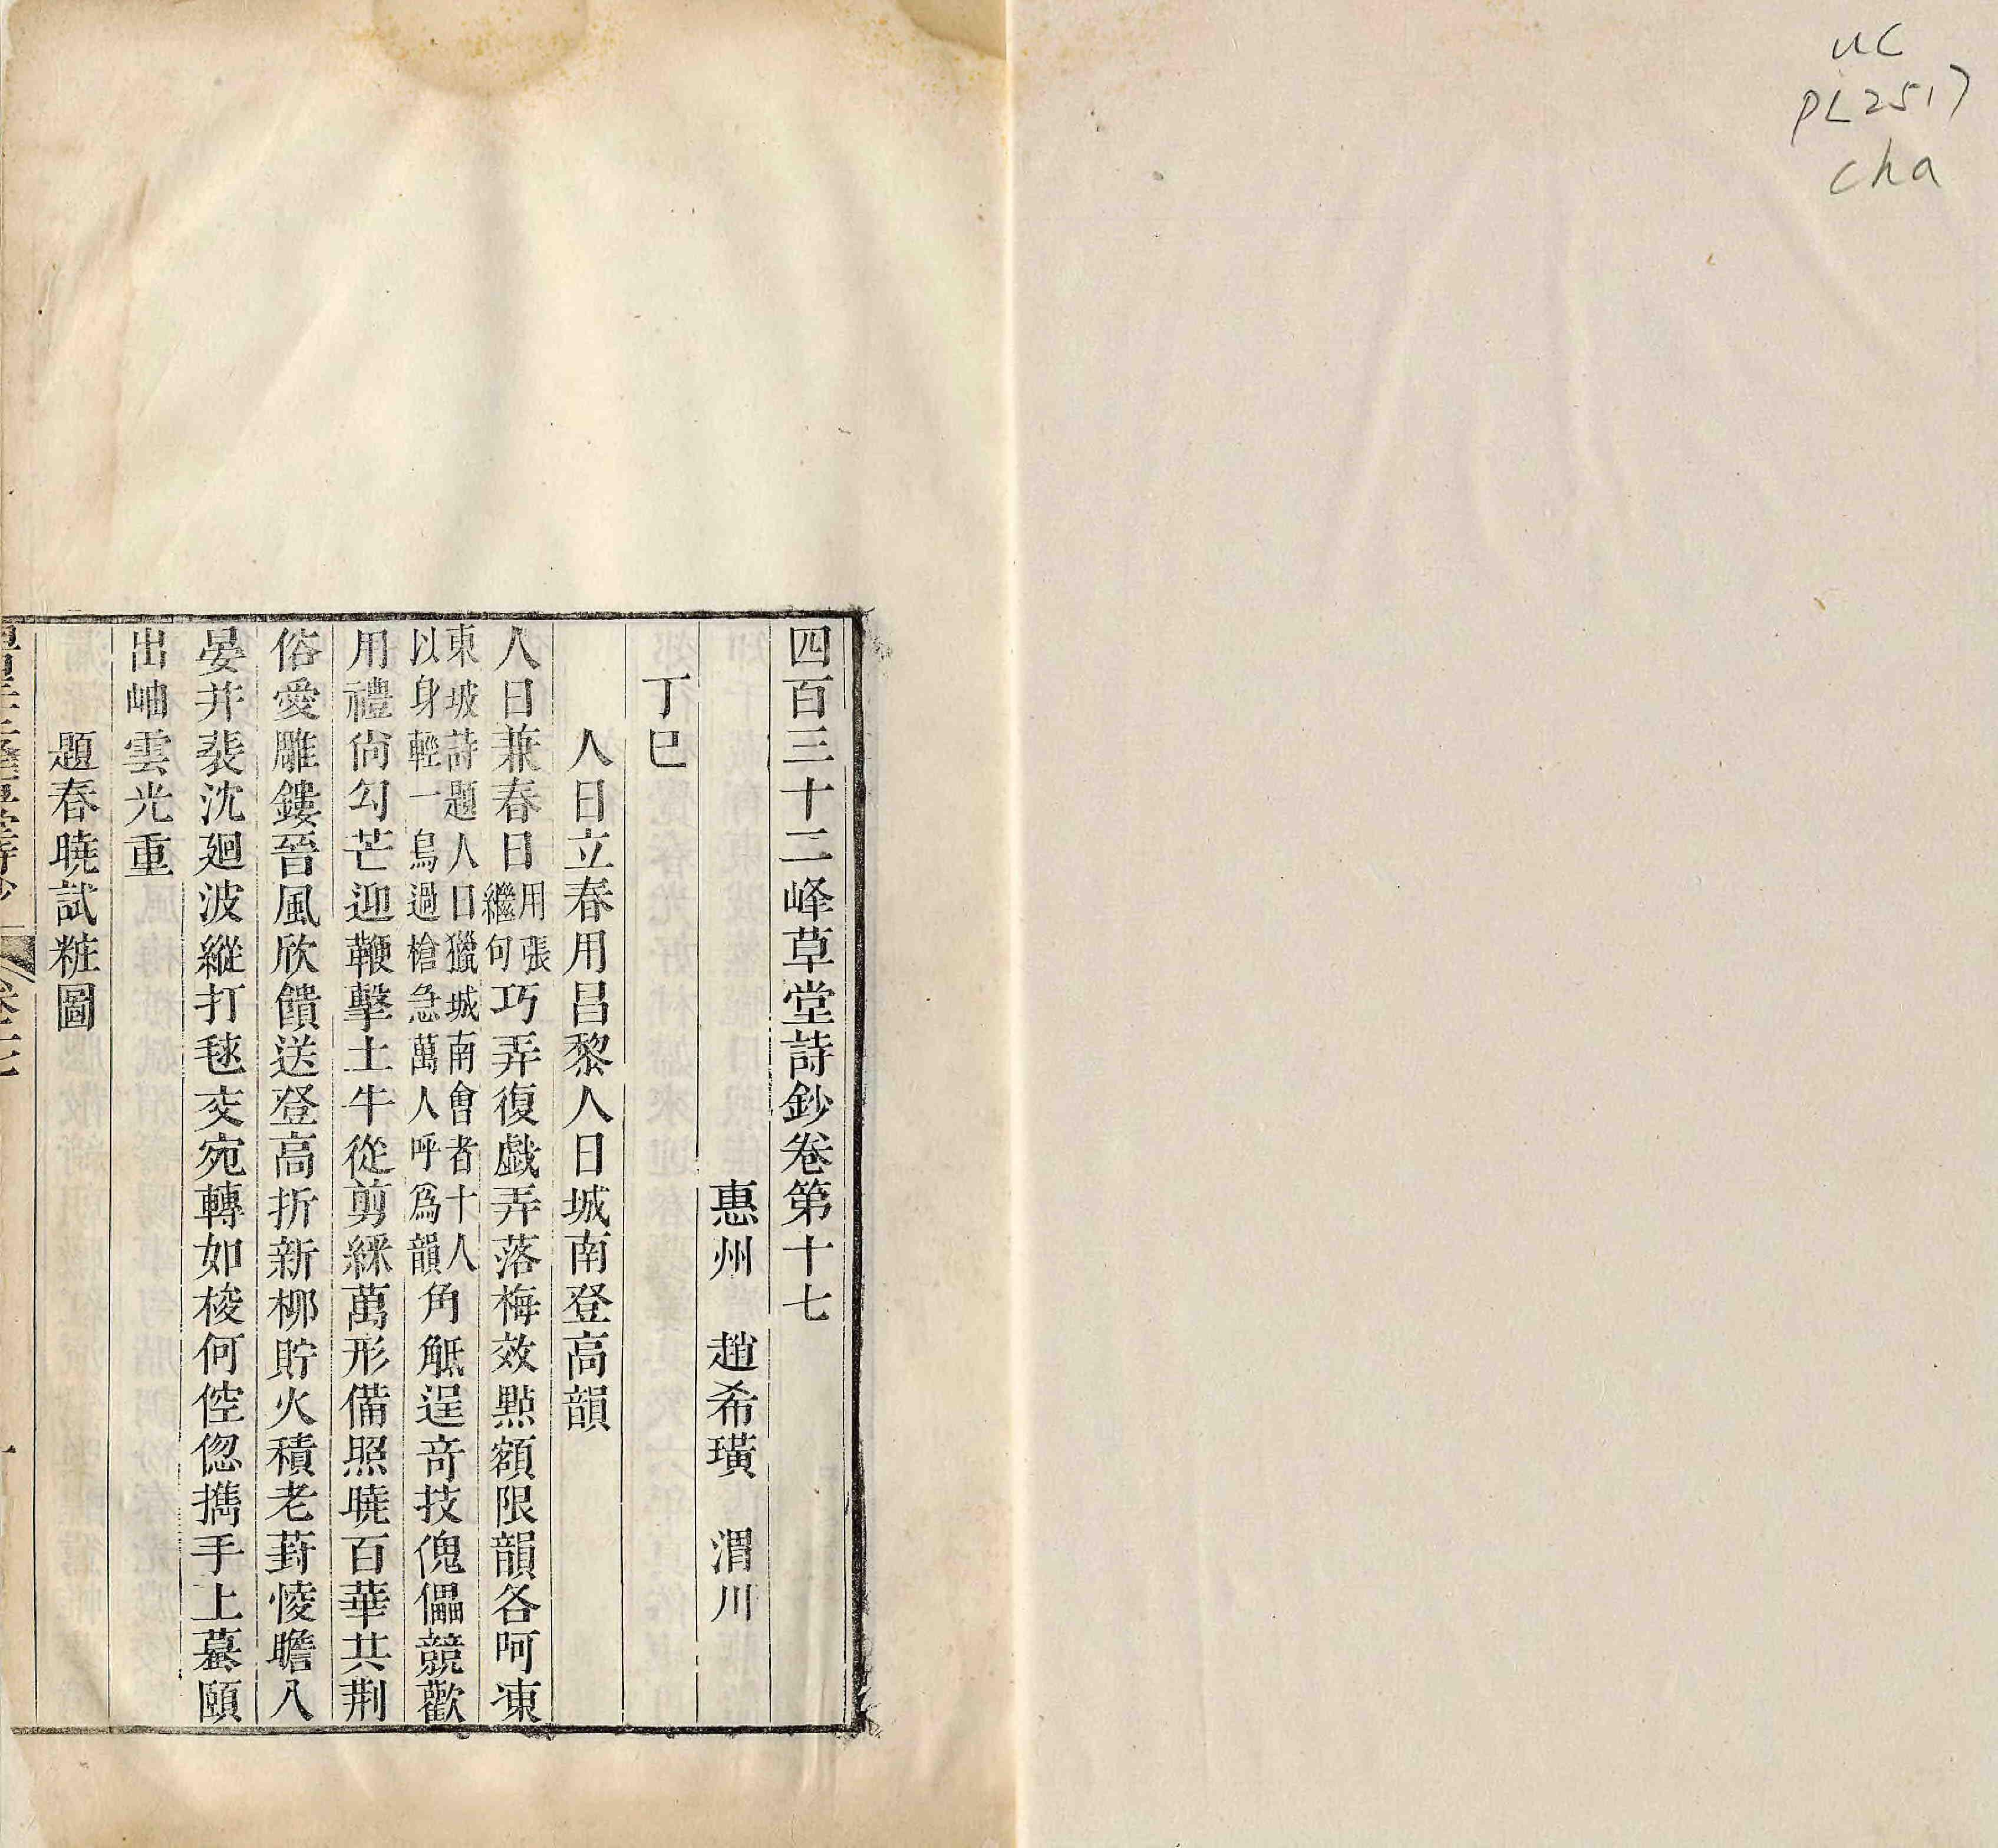 UC
PL2517
cha
四百三十二峰草堂詩鈔卷第十七
惠州 趙希璜 渭川
丁巳
人日立春用昌黎人日城南登高韻
人日兼春日用張繼句巧弄復戯弄落梅效點額限韻各呵凍
東坡詩題人日獵城南會者十人以身輕一鳥過槍急萬人呼爲韻角觝逞竒技傀儡競歡
用禮尙勾芒迎鞭擊土牛從剪綵萬形備照曉百華共荆
俗愛雕鏤晉風欣饋送登高折新栁貯火積老葑倰䠖八
晏井裴沈廻波縱打毬交宛轉如梭何倥偬攜手上蟇頤
出岫雲光重
題春曉試粧圖